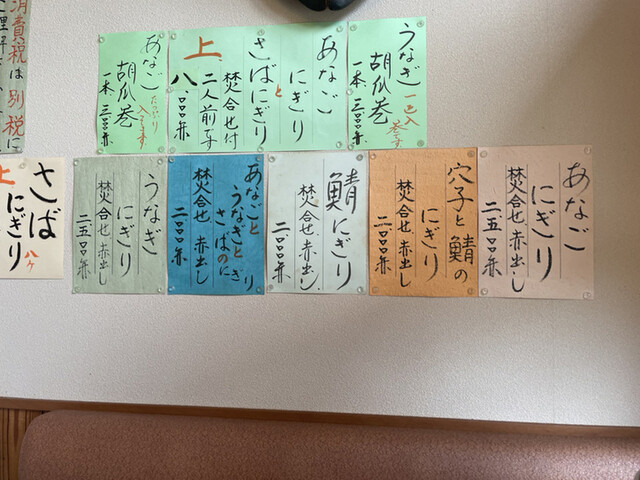 うなぎ
胡瓜巻
一本
あなご
にぎり
と
さばにぎり
上
焚合せ付
二人前です
八、〇〇〇
あなご
胡瓜巻
入てます
一本
消費税は別税に
あなご
にぎり
焚合せ 赤出し
二五〇〇
穴子と鯖の
にぎり
焚合せ 赤出し
二〇〇〇
鯖にぎり
焚合せ 赤出し
二〇〇〇
あなごと
うなぎと
さばのにぎり
焚合せ 赤出し
二〇〇〇
うなぎ
にぎり
焚合せ 赤出し
二五〇〇
さば 八ヶ
上にぎり